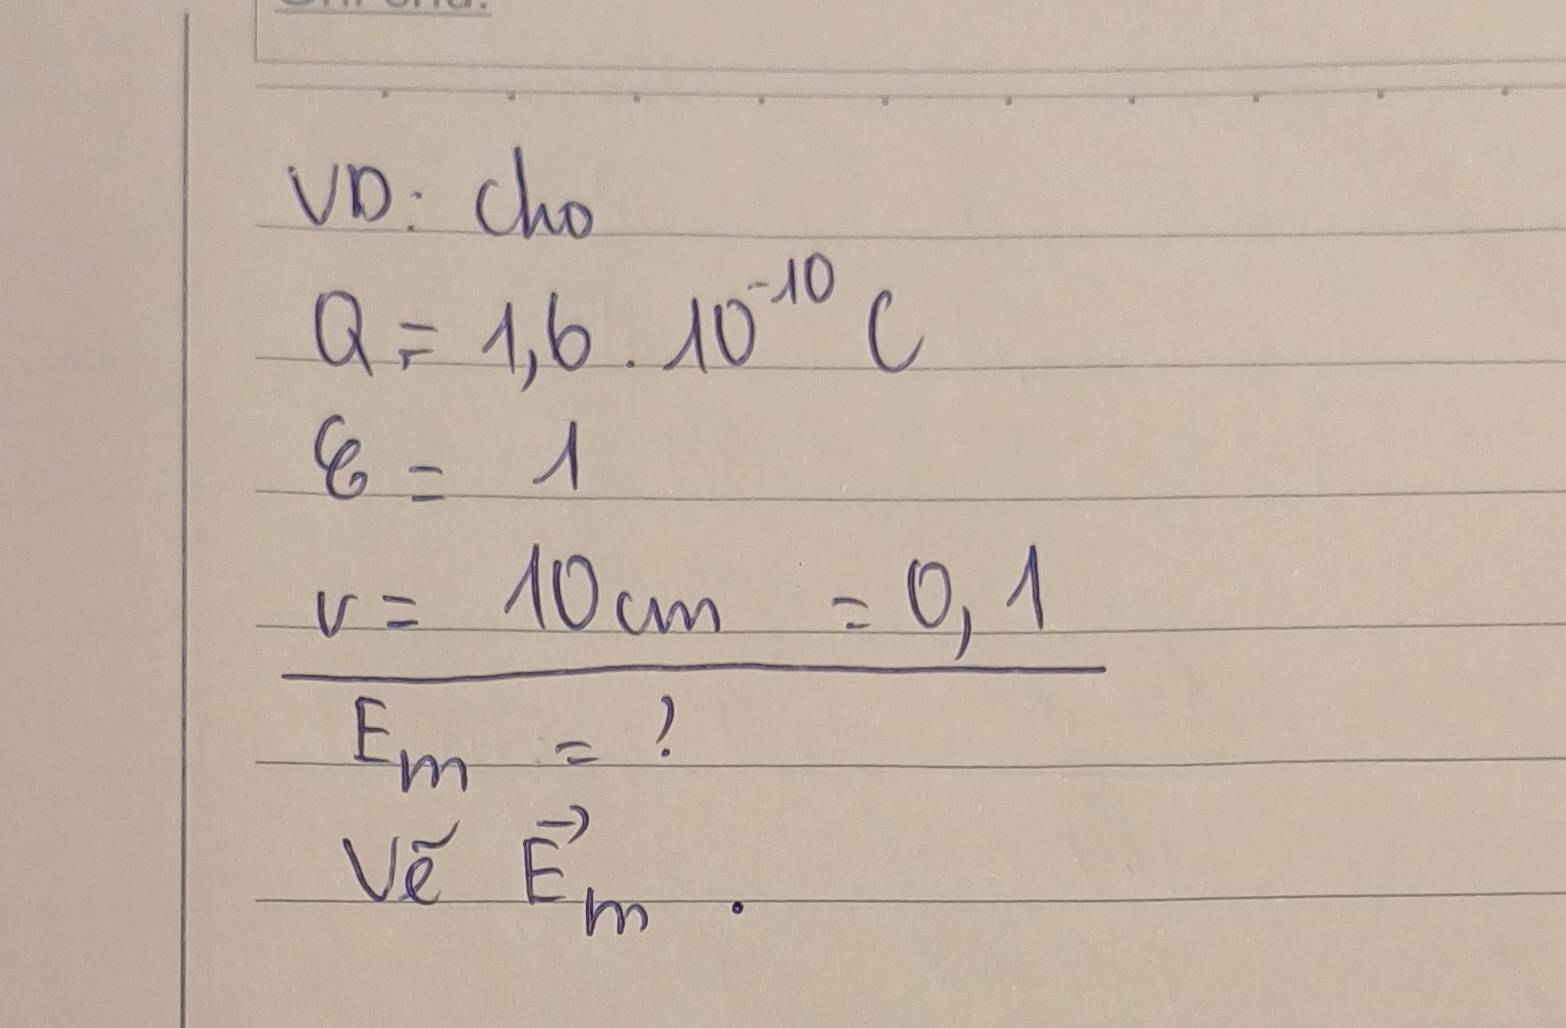 VD: Cho
Q = 1,6 . 10⁻¹⁰ C
ε = 1
r = 10cm = 0,1
Em = ?
Vẽ E⃗m .